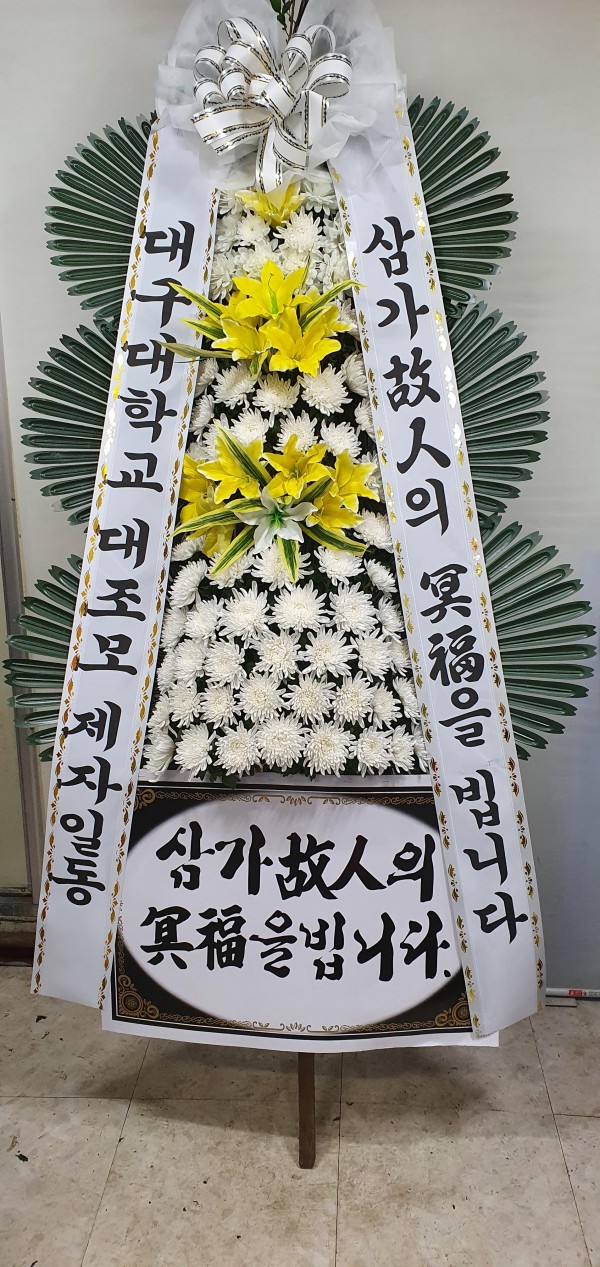 대구대학교 대조모 제자일동
삼가故人의 冥福을 빕니다
삼가故人의
冥福을빕니다.